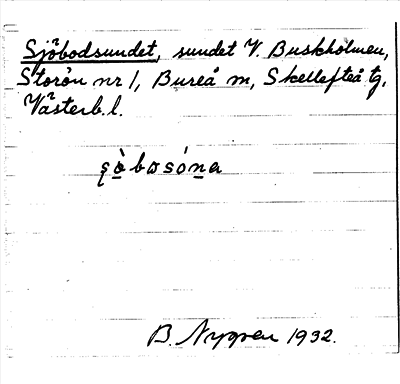 Sjöbodsundet, sundet V. Buskholmen,
Storön nr 1, Bureå sn, Skellefteå tg,
Västerb.l.
şò̱bɷsón̲a
B. Nygren 1932.